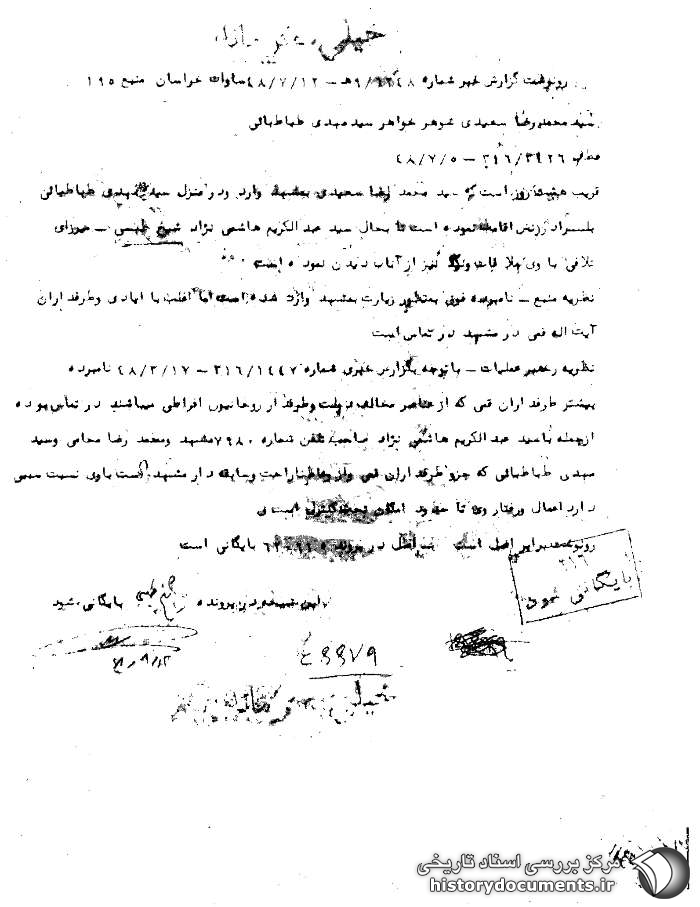 خیلی محرمانه
رونوشت گزارش خبر شماره /۹ه‍ – ۴۸/۷/۱۲ ساواک خراسان منبع ۱۹۵
سید محمدرضا سعیدی شوهر خواهر سید مهدی طباطبائی
عطف ۳۱۶/۳۴۲۶ – ۴۸/۷/۵
قریب هشت روز است که سید محمد رضا سعیدی بمشهد وارد ودر منزل سید مهدی طباطبائی
برادر زنش اقامت نموده است تا بحال سید عبدالکریم هاشمی نژاد شیخ طبسی – میرزای
با وی ملاقات و نیز از آنان دیدن نموده است
نظریه منبع – نامبرده فوق بمنظور زیارت بمشهد وارد شده است اما اغلب با ایادی وطرفداران
آیت اله قمی در مشهد در تماس است
نظریه رهبر عملیات – با توجه بگزارش خبری شماره ۳۱۶/۱۴۴۷ – ۴۸/۳/۱۷ نامبرده
بیشتر طرفداران قمی که از عناصر مخالف دولت وطرفدار روحانیون افراطی میباشند در تماس بوده
ازجمله با سید عبدالکریم هاشمی نژاد صاحب تلفن شماره ۷۹۸۰ مشهد ومحمد رضا محامی وسید
مهدی طباطبائی که جزو طرفداران قمی واز وعاظ ناراحت وسابقه دار مشهد است باوی نسبت سببی
دارد اعمال ورفتار وی تا حدود امکان تحت کنترل است
رونوشت برابر اصل است اصل در پرونده بایگانی است
۳۱۶
بایگانی شود
این نسخه در پرونده شیخ طبسی بایگانی شود
خیلی محرمانه
مرکز بررسی اسناد تاریخی
historydocuments.ir